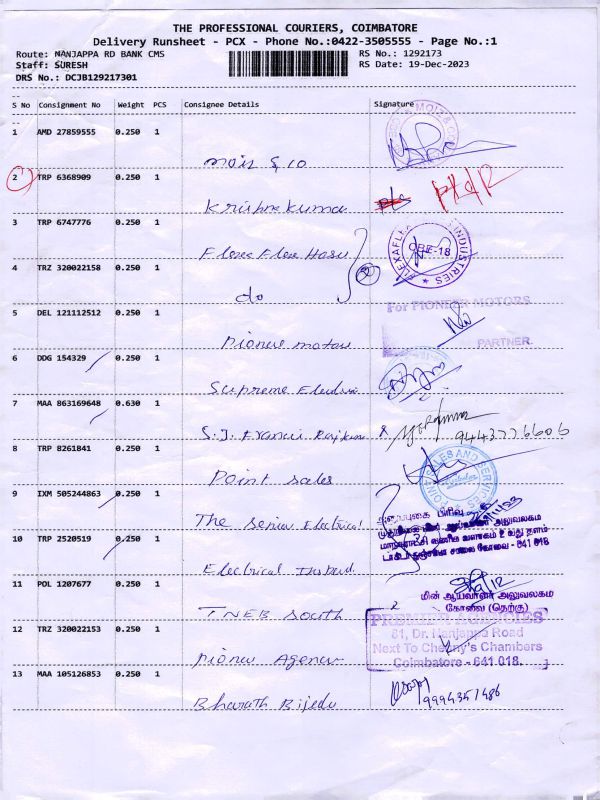 THE PROFESSIONAL COURIERS, COIMBATORE
Delivery Runsheet - PCX - Phone No.:0422-3505555 - Page No.:1
Route: NANJAPPA RD BANK CMS
RS No.: 1292173
Staff: SURESH
RS Date: 19-Dec-2023
DRS No.: DCJB129217301
S No Consignment No Weight PCS Consignee Details Signature
1 AMD 27859555 0.250 1
Moiz & Co
2 TRP 6368909 0.250 1
Krishna kumar
3 TRP 6747776 0.250 1
INDUSTRIES
CBE-18
4 TRZ 320022158 0.250 1
do
2
5 DEL 121112512 0.250 1
For PIONEER MOTORS
Pioneer motors
PARTNER.
6 DDG 154329 0.250 1
Supreme
7 MAA 863169648 0.630 1
S.J. Francis Rajkumar
9443776606
8 TRP 8261841 0.250 1
Point sales
POINT SALES AND SERVICES
9 IXM 505244863 0.250 1
The Senior Electrical
மாநகராட்சி வணிக வளாகம் 2 வது தளம்
10 TRP 2520519 0.250 1
641 018
Electrical
11 POL 1207677 0.250 1
மின் ஆய்வாளர் அலுவலகம்
கோவை (தெற்கு)
TNEB South
PREMIER AGENCIES
12 TRZ 320022153 0.250 1
81, Dr. Nanjappa Road
Next To Cheeny's Chambers
Coimbatore - 641 018.
13 MAA 105126853 0.250 1
9994351486
Bharath